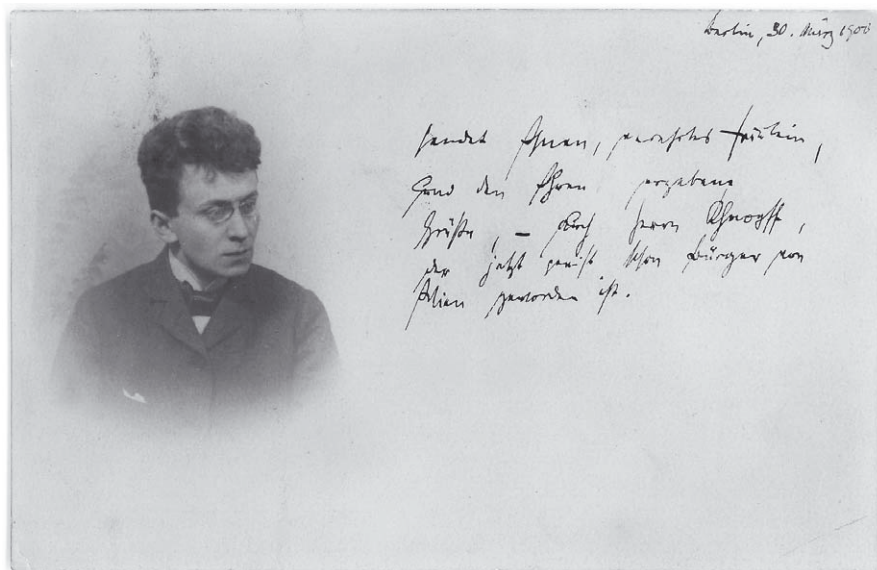 Berlin, 30. März 1900
sendet Ihnen, verehrtes Fräulein,
den Ihren ergebene
Grüße, – auch Herrn Khnopff,
der jetzt gewiß schon Bürger von
Wien geworden ist.